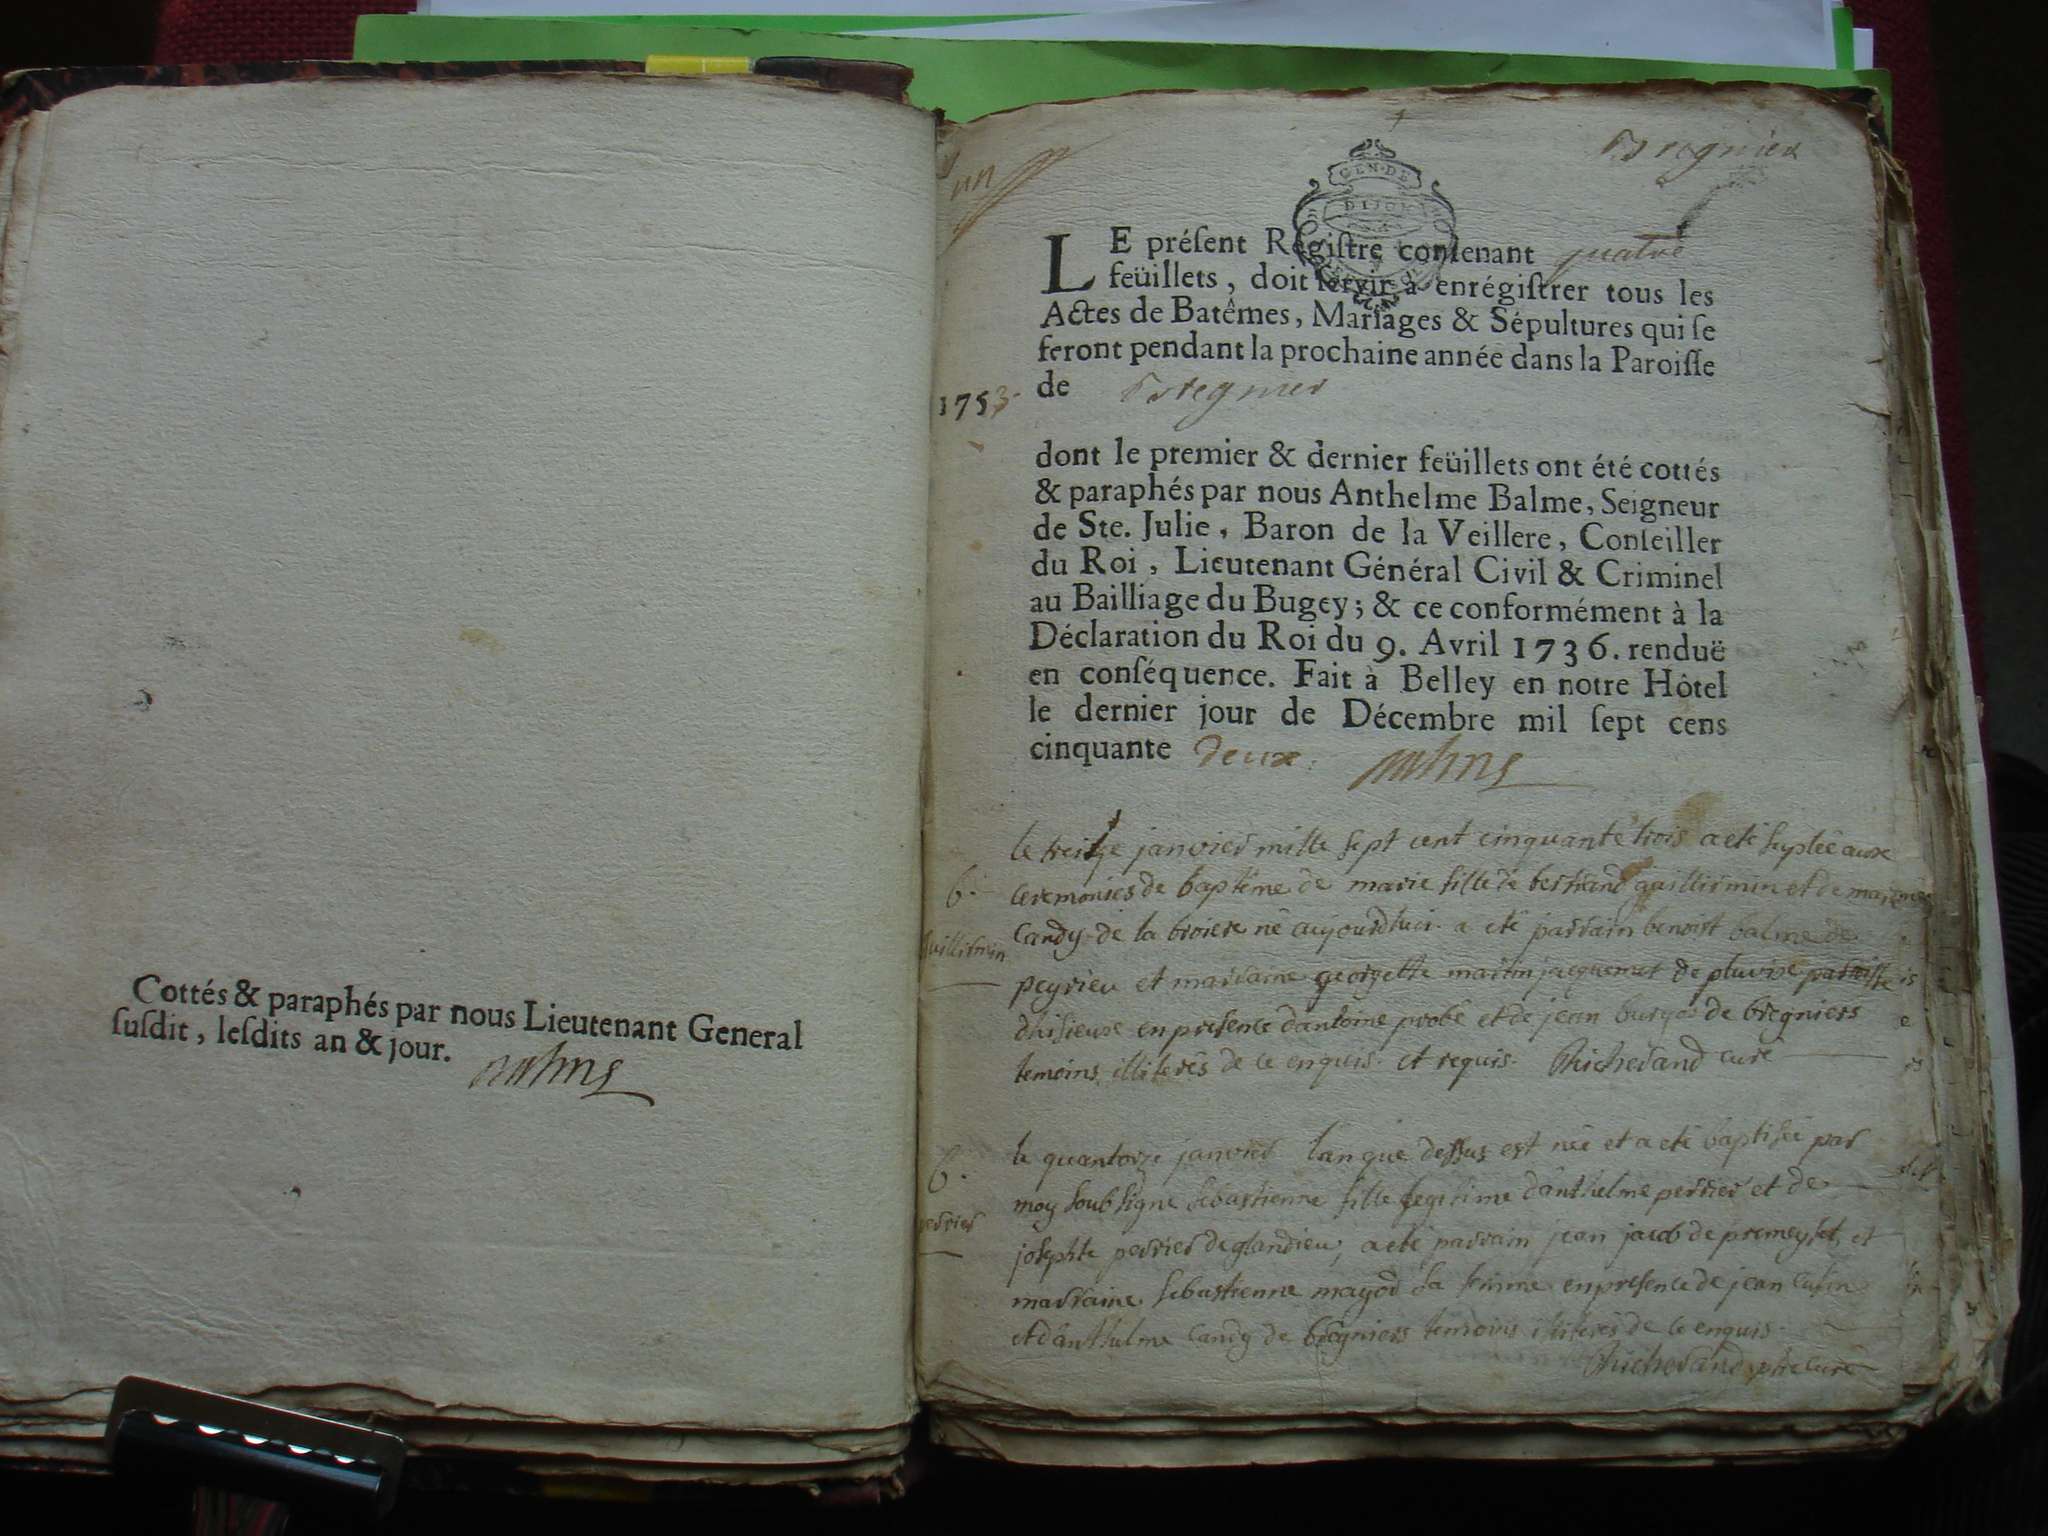 Cottés & paraphés par nous Lieutenant General
susdit, lesdits an & jour.
un
Bregnier
GEN·DE
DIJON
LE préſent Regiſtre contenant quatre
feüillets, doit ſervir à enrégiſtrer tous les
Actes de Batêmes, Mariages & Sépultures qui ſe
feront pendant la prochaine année dans la Paroiſſe
de Bregnier
1753
dont le premier & dernier feüillets ont été cottés
& paraphés par nous Anthelme Balme, Seigneur
de Ste. Julie, Baron de la Veillere, Conſeiller
du Roi, Lieutenant Général Civil & Criminel
au Bailliage du Bugey; & ce conformément à la
Déclaration du Roi du 9. Avril 1736. renduë
en conſéquence. Fait à Belley en notre Hôtel
le dernier jour de Décembre mil ſept cens
cinquante deux
le treize janvier mille sept cent cinquante trois a eté suplée aux
b. ceremonies de baptême de marie fille de bertrand guillermin et de
guillermin candy de la broiere né aujourdhui a eté parrain benoist balme de
peyrieu et marraine georgette martin jacquemet de pluvise parroisse
dhisieux en presence dantoine probe et de jean de bregniers
temoins illiterés de ce enquis et requis. Richerand curé
b. le quantorze janvier lan que dessus est née et a eté baptisée par
moy soubsigne sebastienne fille legitime d'anthelme perrier et de
perrier josephte perrier de glandieu, a eté parrain jean jacob de premeyset et
marraine sebastienne mayod sa femme en presence de jean
et d'anthelme candy de bregniers temoins illiterés de ce enquis
Richerand ptre curé